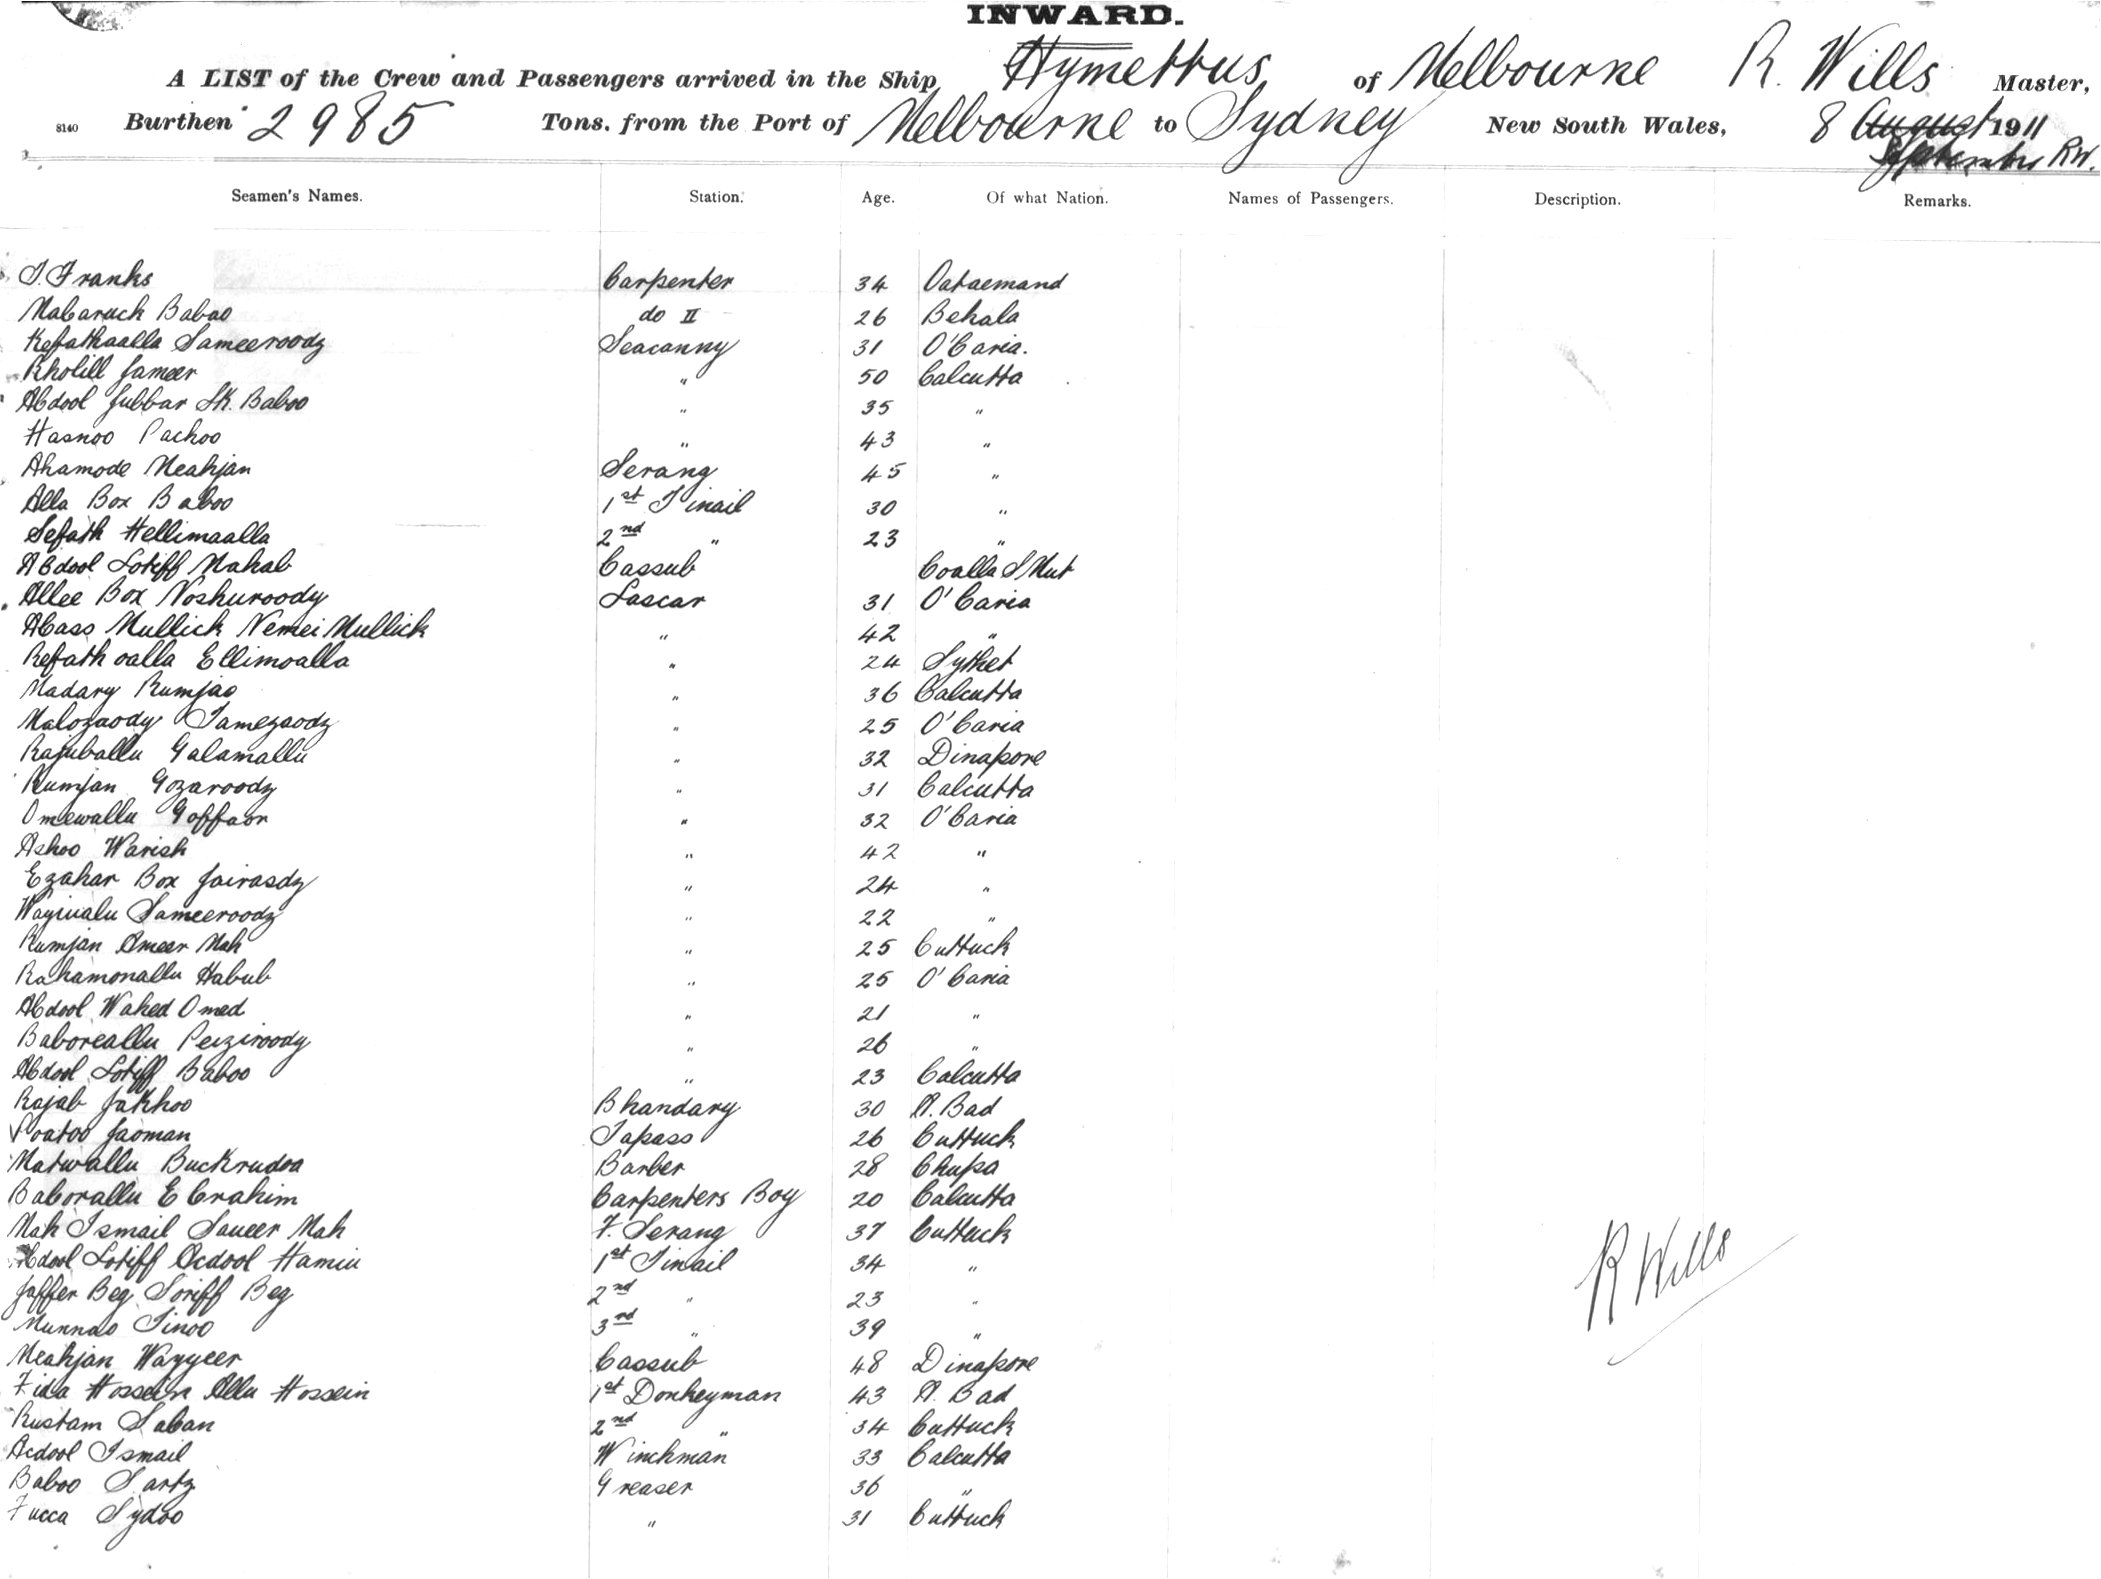 INWARD.
A LIST of the Crew and Passengers arrived in the Ship Hymettus of Melbourne R. Wills Master,
8140 Burthen 2985 Tons. from the Port of Melbourne to Sydney New South Wales, 8 August 1911
September RW.
Seamen's Names. Station. Age. Of what Nation. Names of Passengers. Description. Remarks.
J. Franks Carpenter 34 Oataemand
Mabaruck Baboo do II 26 Behala
Kefathaalla Sameeroody Seacanny 31 O'Baria.
Kholill Jameer " 50 Calcutta
Abdool Jubbar Sk. Baboo " 35 "
Hasnoo Pachoo " 43 "
Ahamode Meahjan Serang 45 "
Alla Box Baboo 1st Tinail 30 "
Sefath Hellimaalla 2nd " 23 "
Abdool Lotiff Mahab Cassub Coalla S Mut
Allee Box Noshuroody Lascar 31 O'Baria
Abass Mullick Nemei Mullick " 42 "
Refath oalla Ellimoalla " 24 Sylhet
Madary Rumjao " 36 Calcutta
Malozaody Samezaody " 25 O'Baria
Rajuballu Galamallu " 32 Dinapore
Rumjan Gozaroody " 31 Calcutta
Omewallu Goffaor " 32 O'Baria
Ashoo Warish " 42 "
Ezahar Box Jairasdy " 24 "
Wayiualu Sameeroody " 22 "
Rumjan Ameer Mah " 25 Cuttuck
Rahamonallu Habub " 25 O'Baria
Abdool Wahed Omed " 21 "
Baboreallu Peiziroody " 26 "
Abdool Lotiff Baboo " 23 Calcutta
Rajab Jakhoo Bhandary 30 A. Bad
Poatoo Jaoman Tapass 26 Cuttuck
Matwallu Buckrudoa Barber 28 Chupa
Baborallu Ebrahim Carpenters Boy 20 Calcutta
Mah Ismail Saueer Mah F. Serang 37 Cuttuck
Abdool Lotiff Acdool Hamiu 1st Tinail 34 "
Jaffer Beg Soriff Beg 2nd " 23 "
Munnao Tinoo 3rd " 39 "
Meahjan Wayyeer Cassub 48 Dinapore
Fida Hossein Allu Hossein 1st Donkeyman 43 A. Bad
Rustam Saban 2nd " 34 Cuttuck
Acdool Ismail Winchman 33 Calcutta
Baboo Sartz Greaser 36 "
Fucca Sydoo " 31 Cuttuck
R Wills